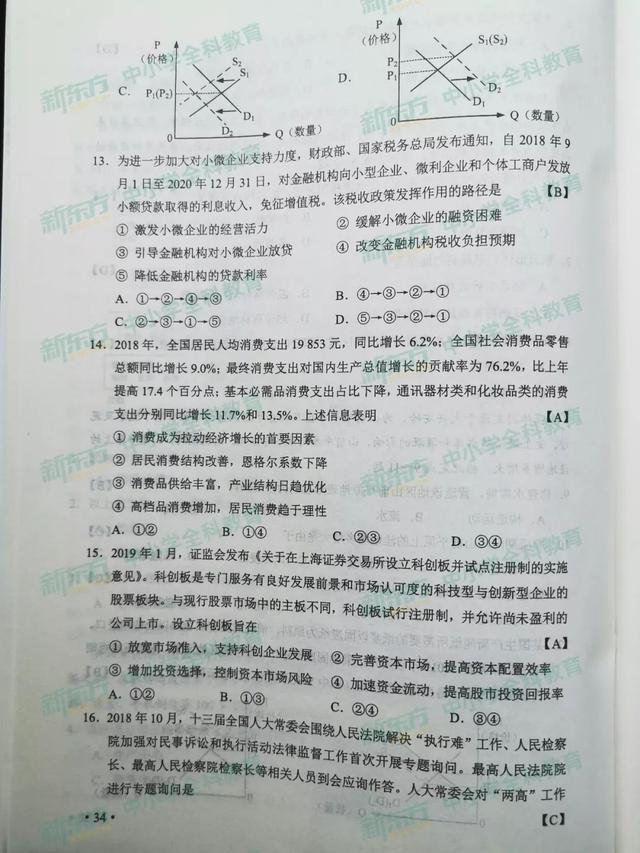 P
(价格)
S₂
S₁
C.
P₁(P₂)
D₁
D₂
0
Q（数量）
P
(价格)
S₁(S₂)
D.
P₂
P₁
D₂
D₁
0
Q（数量）
13. 为进一步加大对小微企业支持力度，财政部、国家税务总局发布通知，自 2018 年 9
月 1 日至 2020 年 12 月 31 日，对金融机构向小型企业、微利企业和个体工商户发放
小额贷款取得的利息收入，免征增值税。该税收政策发挥作用的路径是 【B】
① 激发小微企业的经营活力 ② 缓解小微企业的融资困难
③ 引导金融机构对小微企业放贷 ④ 改变金融机构税收负担预期
⑤ 降低金融机构的贷款利率
A. ①→②→④→③ B. ④→③→②→①
C. ②→③→①→⑤ D. ⑤→③→②→①
14. 2018 年，全国居民人均消费支出 19 853 元，同比增长 6.2%；全国社会消费品零售
总额同比增长 9.0%；最终消费支出对国内生产总值增长的贡献率为 76.2%，比上年
提高 17.4 个百分点；基本必需品消费支出占比下降，通讯器材类和化妆品类的消费
支出分别同比增长 11.7%和 13.5%。上述信息表明 【A】
① 消费成为拉动经济增长的首要因素
② 居民消费结构改善，恩格尔系数下降
③ 消费品供给丰富，产业结构日趋优化
④ 高档品消费增加，居民消费趋于理性
A. ①② B. ①④ C. ②③ D. ③④
15. 2019 年 1 月，证监会发布《关于在上海证券交易所设立科创板并试点注册制的实施
意见》。科创板是专门服务有良好发展前景和市场认可度的科技型与创新型企业的
股票板块。与现行股票市场中的主板不同，科创板试行注册制，并允许尚未盈利的
公司上市。设立科创板旨在 【A】
① 放宽市场准入，支持科创企业发展 ② 完善资本市场，提高资本配置效率
③ 增加投资选择，控制资本市场风险 ④ 加速资金流动，提高股市投资回报率
A. ①② B. ①③ C. ②④ D. ③④
16. 2018 年 10 月，十三届全国人大常委会围绕人民法院解决“执行难”工作、人民检察
院加强对民事诉讼和执行活动法律监督工作首次开展专题询问。最高人民法院院
长、最高人民检察院检察长等相关人员到会应询作答。人大常委会对“两高”工作
进行专题询问是 【C】
· 34 ·
新东方 中小学全科教育